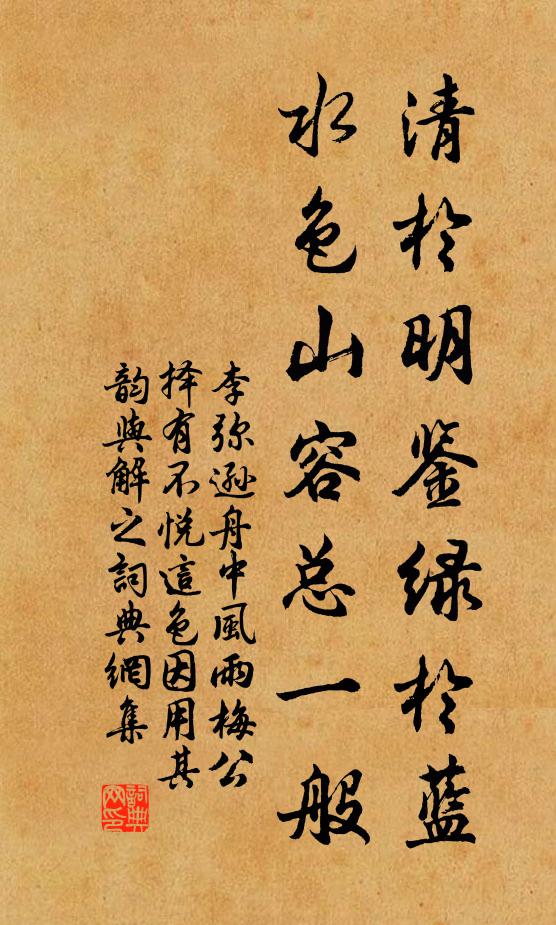 清於明鉴绿於蓝
水色山容总一般
李弥逊舟中風雨梅公
择有不悦這色因用其
韵與解之詞典網集
詞典網印